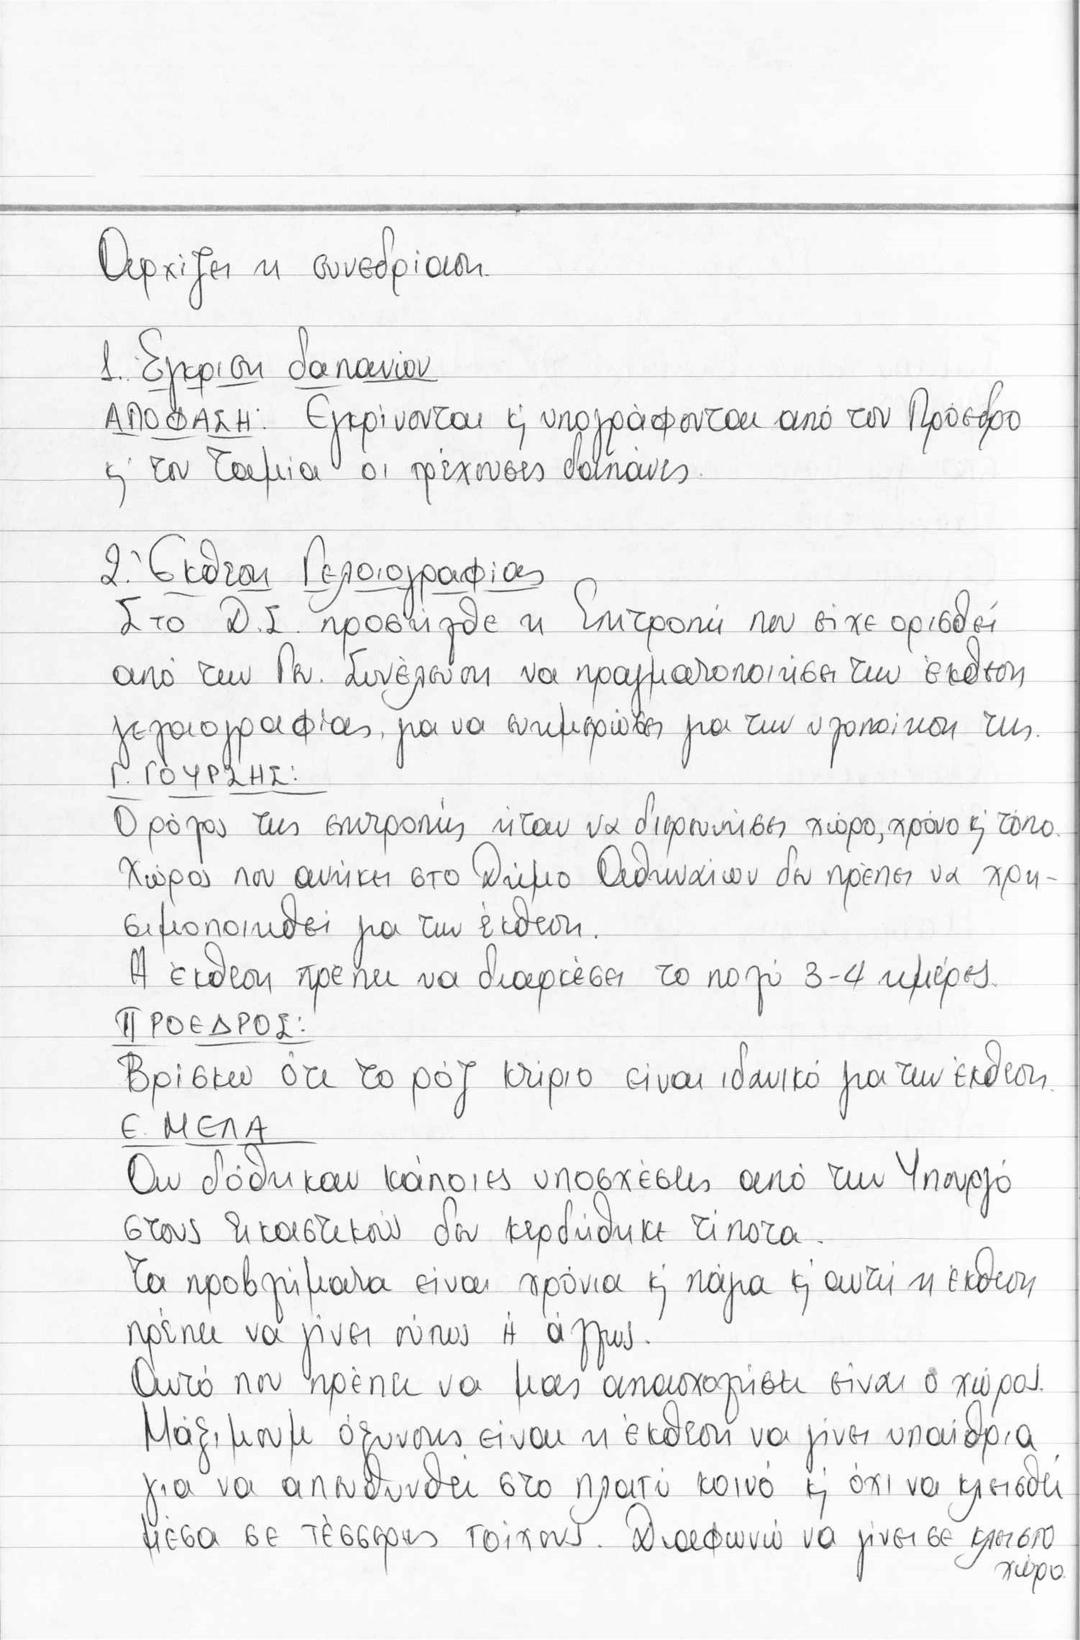 Αρχίζει η συνεδρίαση.
1. Έγκριση δαπανών
ΑΠΟΦΑΣΗ: Εγκρίνονται κ' υπογράφονται από τον Πρόεδρο
κ' τον Ταμία οι τρέχουσες δαπάνες.
2. Έκθεση Γελοιογραφίας
Στο Δ.Σ. προσήλθε η Επιτροπή που είχε ορισθεί
από την Γεν. Συνέλευση να πραγματοποιήσει την έκθεση
γελοιογραφίας, για να ενημερώσει για την υλοποίηση της.
Γ. ΓΟΥΡΣΗΣ:
Ο ρόλος της επιτροπής ήταν να διερευνήσει χώρο, χρόνο κ' τόπο.
Χώρος που ανήκει στο Δήμο Αθηναίων δεν πρέπει να χρη-
σιμοποιηθεί για την έκθεση.
Η έκθεση πρέπει να διαρκέσει το πολύ 3-4 ημέρες.
ΠΡΟΕΔΡΟΣ:
Βρίσκω ότι το ρόζ κτίριο είναι ιδανικό για την έκθεση.
Ε. ΜΕΛΑ
Αν δόθηκαν κάποιες υποσχέσεις από την Υπουργό
στους Εικαστικούς δεν κερδήθηκε τίποτα.
Τα προβλήματα είναι χρόνια κ' πάγια κ' αυτή η έκθεση
πρέπει να γίνει ούτως ή άλλως.
Αυτό που πρέπει να μας απασχολήσει είναι ο χώρος.
Μάξιμουμ όξυνσης είναι η έκθεση να γίνει υπαίθρια
για να απευθυνθεί στο πλατύ κοινό κ' όχι να κλεισθεί
μέσα σε τέσσερις τοίχους. Διαφωνώ να γίνει σε κλειστό
χώρο.